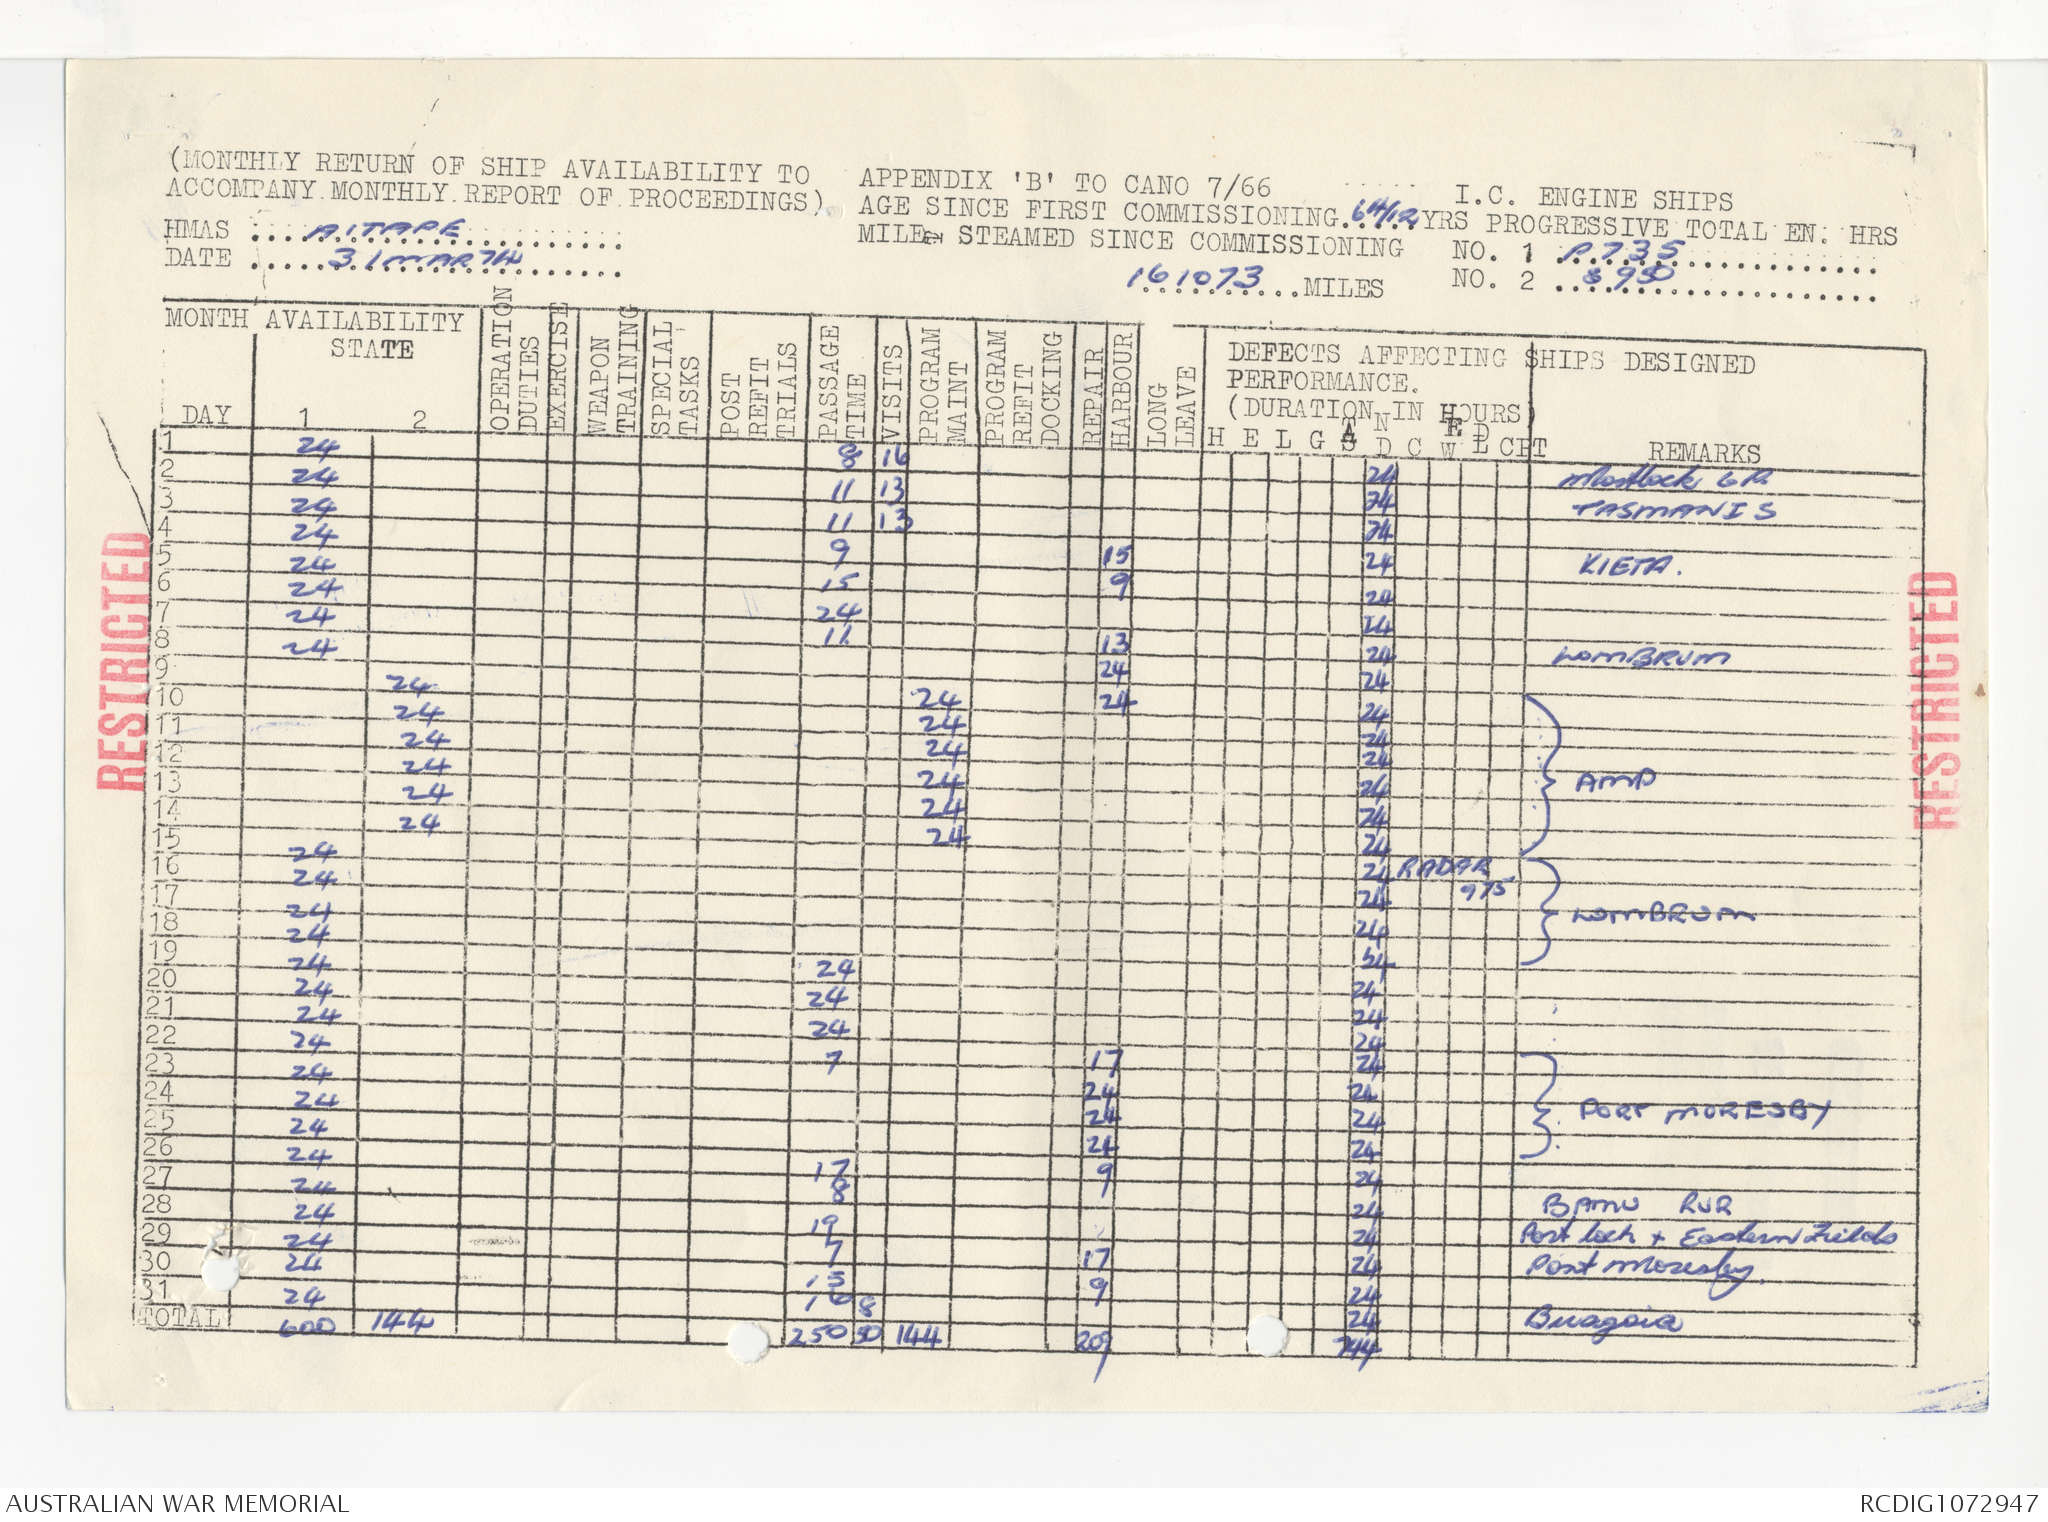 (MONTHLY RETURN OF SHIP AVAILABILITY TO
ACCOMPANY MONTHLY REPORT OF PROCEEDINGS)
HMAS AITAPE
DATE 31 MAR 74
APPENDIX 'B' TO CANO 7/66
AGE SINCE FIRST COMMISSIONING 6 4/12 YRS PROGRESSIVE TOTAL EN. HRS
MILES STEAMED SINCE COMMISSIONING
161073 MILES
I.C. ENGINE SHIPS
NO. 1 P735
NO. 2 S950
MONTH AVAILABILITY STATE
DAY 1 2
OPERATION DUTIES
EXERCISE
WEAPON TRAINING
SPECIAL TASKS
POST REFIT TRIALS
PASSAGE TIME
VISITS
PROGRAM MAINT
PROGRAM REFIT DOCKING
REPAIR
HARBOUR
LONG LEAVE
DEFECTS AFFECTING SHIPS DESIGNED
PERFORMANCE.
(DURATION IN HOURS)
H E L G AS ND C W ED L CPT REMARKS
1 24 8 16 24 Mortlock GP.
2 24 11 13 24 TASMAN IS
3 24 11 13 24
4 24 9 15 24 KIETA.
5 24 15 9 24
6 24 24 24
7 24 11 13 24 LOMBRUM
8 24 24 24
9 24 24 24
10 24 24 24
11 24 24 24
12 24 24 24 AMP
13 24 24 24
14 24 24 24
15 24 24 RADAR
16 24 24 975
17 24 24 LOMBRUM
18 24 24
19 24 24 24
20 24 24 24
21 24 24 24
22 24 7 17 24
23 24 24 24
24 24 24 24 PORT MORESBY
25 24 24 24
26 24 17 9 24
27 24 8 24 BAMU RVR
28 24 19 24 Port Lock + Eastern Fields
29 24 7 17 24 Port Moresby.
30 24 15 9 24
31 24 16 8 24 Bwagaoia
TOTAL 600 144 250 50 144 209 744
RESTRICTED
RESTRICTED
AUSTRALIAN WAR MEMORIAL
RCDIG1072947